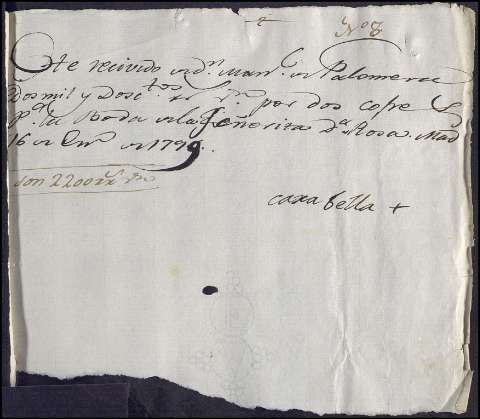 No 8
He recivido de Dn. Manl. de Palomera
Dos mil y Dosctos. rs. vn. por dos cofres
Pa. la Boda de la señorita Da. Rosa. Mad
16 de Enº de 1799.
son 2200 rs. vn
caxa bella +